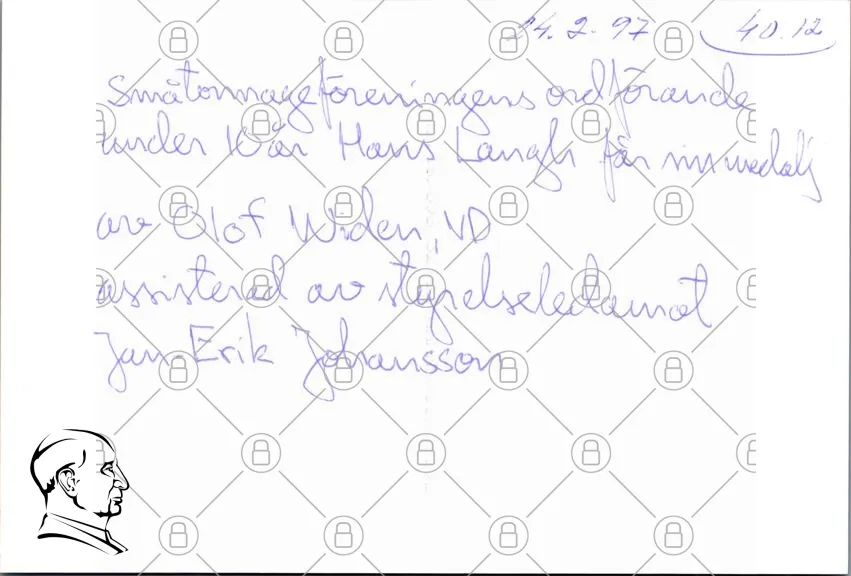 24.2.97 40.12
Småtonnageföreningens ordförande
under 10 år Hans Langh får sin medalj
av Olof Widen, VD
assisterad av styrelseledamot
Jan-Erik Johansson